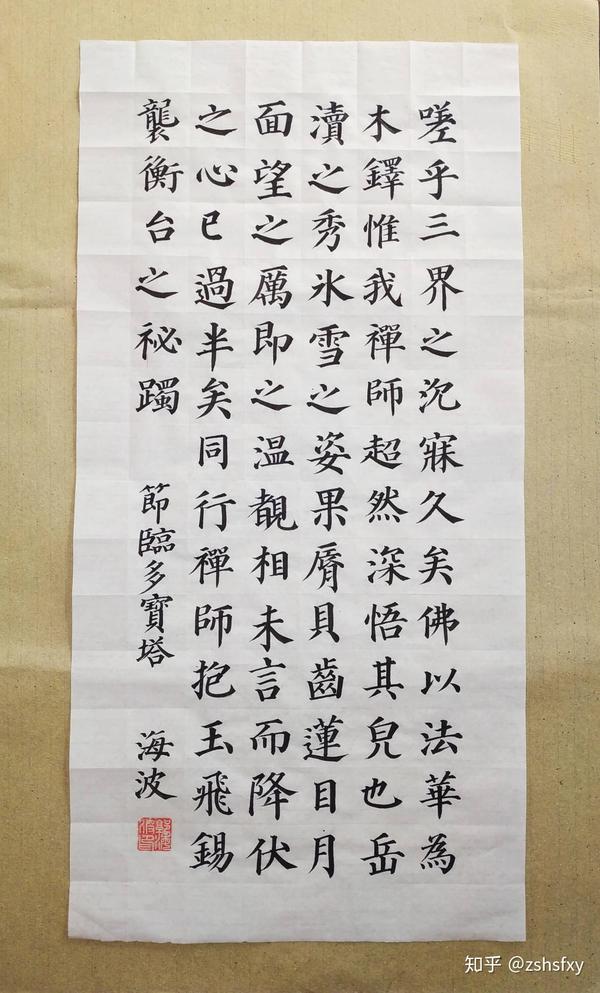 嗟乎三界之沉寐久矣佛以法華為
木鐸惟我禪師超然深悟其皃也岳
瀆之秀氷雪之姿果脣貝齒蓮目月
面望之厲即之温覩相未言而降伏
之心已過半矣同行禪師抱玉飛錫
襲衡台之祕躅
節臨多寶塔
海波
知乎 @zshsfxy